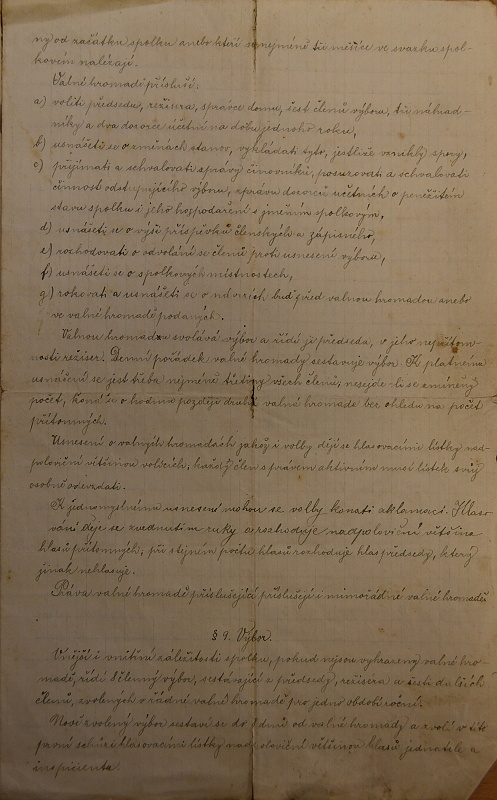 ny od začátku spolku anebo kteří se nejméně tři měsíce ve svazku spol-
kovém nalézají.
Valné hromadě přísluší:
a) voliti předsedu, režisera, správce domu, šest členů výboru, tři náhrad-
níky a dva dozorce účetní na dobu jednoho roku,
b) usnášeti se o změnách stanov, vykládati tyto, jestliže vznikly spory,
c) přijímati a schvalovati zprávy činovníků, posuzovati a schvalovati
činnost odstupujícího výboru, zprávu dozorců účetních o peněžitém
stavu spolku i jeho hospodaření s jměním spolkovým,
d) usnášeti se o výši příspěvků členských a zápisného,
e) rozhodovati o odvolání se členů proti usnesení výboru,
f) usnášeti se o spolkových místnostech,
g) rokovati a usnášeti se o návrzích buď před valnou hromadou anebo
ve valné hromadě podaných.
Valnou hromadu svolává výbor a řídí ji předseda, v jeho nepřítom-
nosti režiser. Denní pořádek valné hromady sestavuje výbor. K platnému
usnášení se jest třeba nejméně třetiny všech členů, nesejde-li se zmíněný
počet, koná se o hodinu později druhá valná hromada bez ohledu na počet
přítomných.
Usnesení o valných hromadách jakož i volby dějí se hlasovacími lístky nad-
poloviční většinou volících, každý člen s právem aktivním musí lístek svůj
osobně odevzdati.
K jednomyslnému usnesení mohou se volby konati aklamací. Hlaso-
vání děje se zvednutím ruky a rozhoduje nadpoloviční většina
hlasů přítomných, při stejném počtu hlasů rozhoduje hlas předsedy, který
jinak nehlasuje.
Práva valné hromadě příslušející příslušejí i mimořádné valné hromadě.
§ 9. Výbor.
Vnější i vnitřní záležitosti spolku, pokud nejsou vyhrazeny valné hro-
madě, řídí členný výbor, sestávající z předsedy, režisera a šesti dalších
členů, zvolených v řádné valné hromadě pro jedno období roční.
Nově zvolený výbor sestaví se do dnů od valné hromady a zvolí v této
první schůzi hlasovacími lístky nadpoloviční většinou hlasů jednatele a
inspicienta.